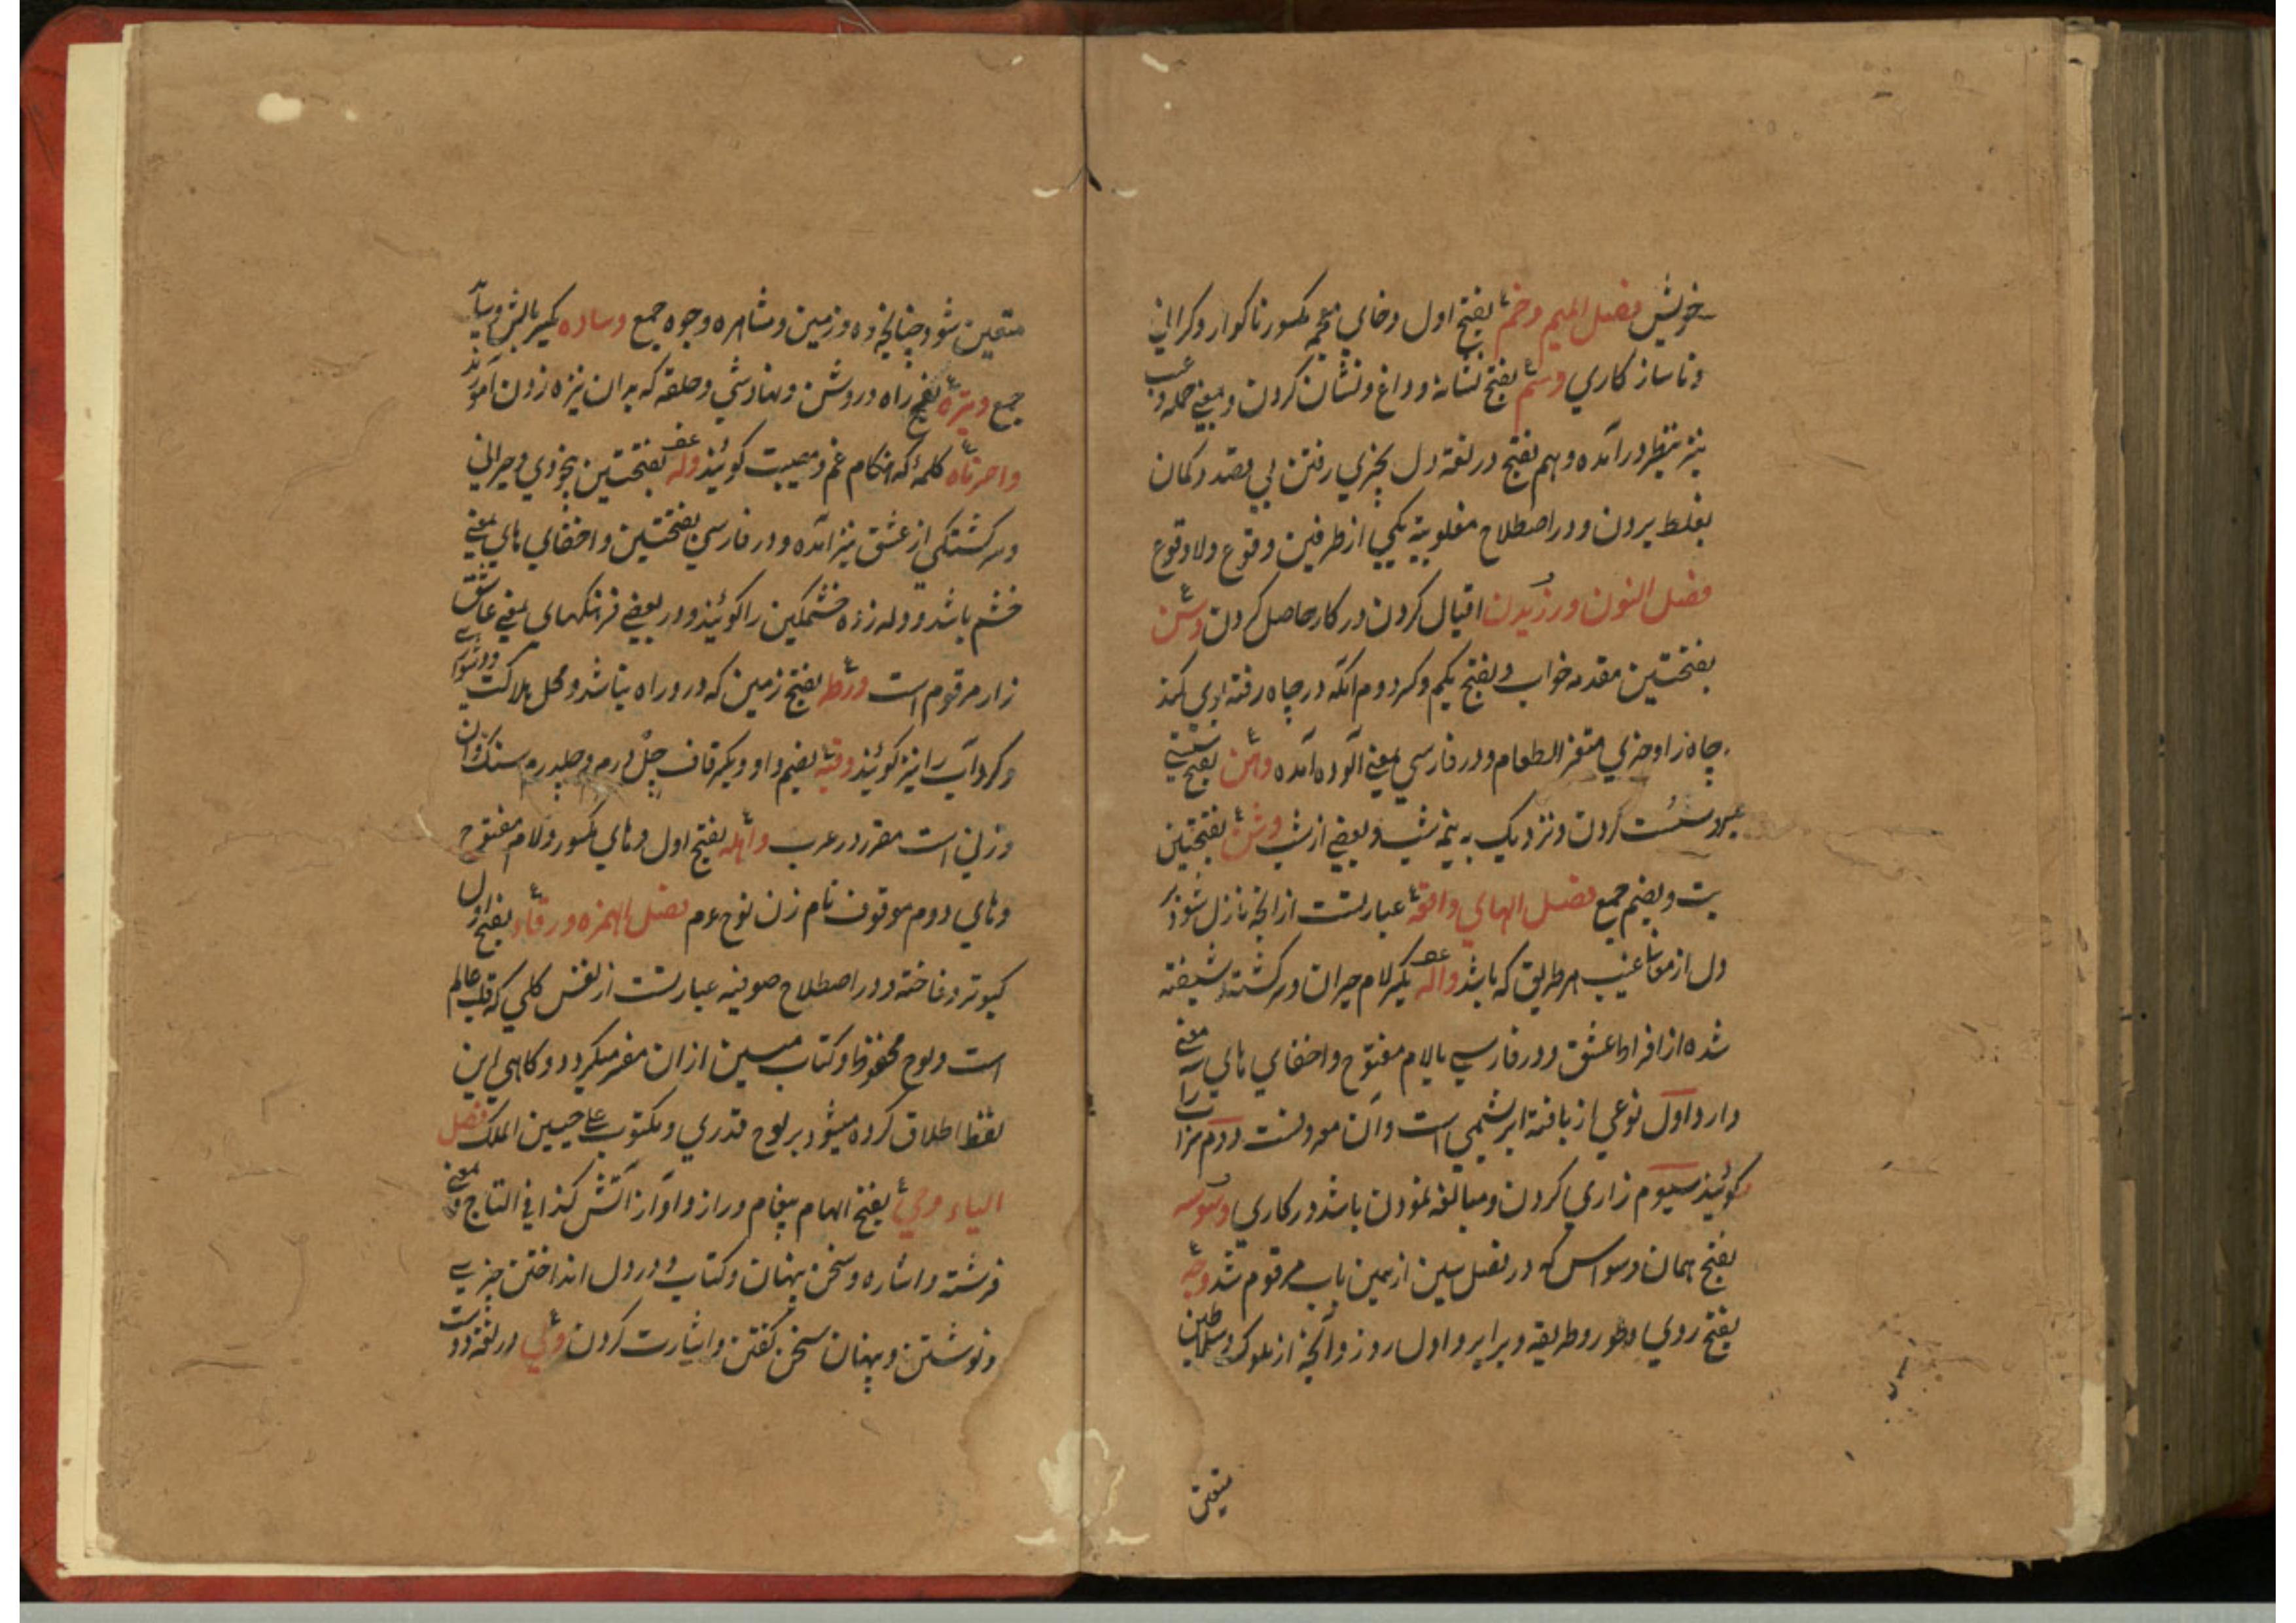 خویش فصل المیم وخم بفتح اول وخای معجمه مکسور ناکوار وکرانی
وناسازکاری وسم بفتح نشانه وداغ ونشان کردن وبمعنی حمله وعیب
نیز بنظر درآمده وهم بفتح در لغة دل بچیزی رفتن بی قصد وکمان
بغلط بردن ودر اصطلاح مغلوبیة یکی از طرفین وقوع ولاوقوع
فصل النون ورزیدن اقبال کردن در کار حاصل کردن وسن
بفتحتین مقدمه خواب وبفتح یکم وکسر دوم آنکه در چاه رفته از بوی کند
چاه زا وحزی متغیر الطعام ودر فارسی بمعنی آلوده آمده وهن بفتح سستی
سست کردن ونزدیک به نیم شب وبعضی از شب وثن بفتحتین
بت وبضم جمع فصل الهای واقعه عبارتست از انچه نازل شود بر
دل از عالم غیب بهر طریق که باشد واله بکسر لام حیران وسرکشته وشیفته
شده از افراط عشق ودر فارسی بالام مفتوح واخفای های سه معنی
دارد اول نوعی از بافته ابریشمی است وآن معروفست دوم سراب را
کویند سیوم زاری کردن ومبالغه نمودن باشد در کاری وسوسه
بفتح همان وسواس که در فصل سین از همین باب مرقوم شد وجه
بفتح روی وطور وطریقه وبرابر واول روز وآنچه از ملوک وسلاطین
متعین
متعین شود چنانچه ده وزمین ومشاهره وجوه جمع وساده بکسر بالش وساید
جمع وتیره بفتح راه وروش ونهاد شی وحلقه که بران نیزه زدن آموزند
واحرتاه کلمه که هنکام غم ومصیبت کویند وله بفتحتین بیخودی وحیرانی
وسرکشتکی از عشق نیز آمده ودر فارسی بفتحتین واخفای های بمعنی
خشم باشد ووله زده خشمکین را کویند ودر بعضی فرهنکهای بمعنی عاشق
زار مرقوم است ورطه بفتح زمین که درو راه نباشد ومحل هلاکت ودشواری
وکرداب را نیز کویند وقیه بضم واو وبکسر قاف چل درم وچلدرم سنک وآن
وزنی است مقرر در عرب واهله بفتح اول وهای مکسور ولام مفتوح
وهای دوم موقوف نام زن نوح عم فصل الهمزه ورقاء بفتح اول
کبوتر وفاخته ودر اصطلاح صوفیه عبارتست از نفس کلی که قلب عالم
است ولوح محفوظ وکتاب مبین ازان مفر میکردد وکاهی این
لفظ اطلاق کرده میشود بر لوح قدری ومکتوب علی جبین الملک فصل
الیاء وحی بفتح الهام پیغام وراز وآواز آتش کذا فی التاج وبمعنی
فرشته واشاره وسخن پنهان وکتاب ودر دل انداختن چیزی
ونوشتن وپنهان سخن کفتن واشارت کردن ولی در لغة دوست